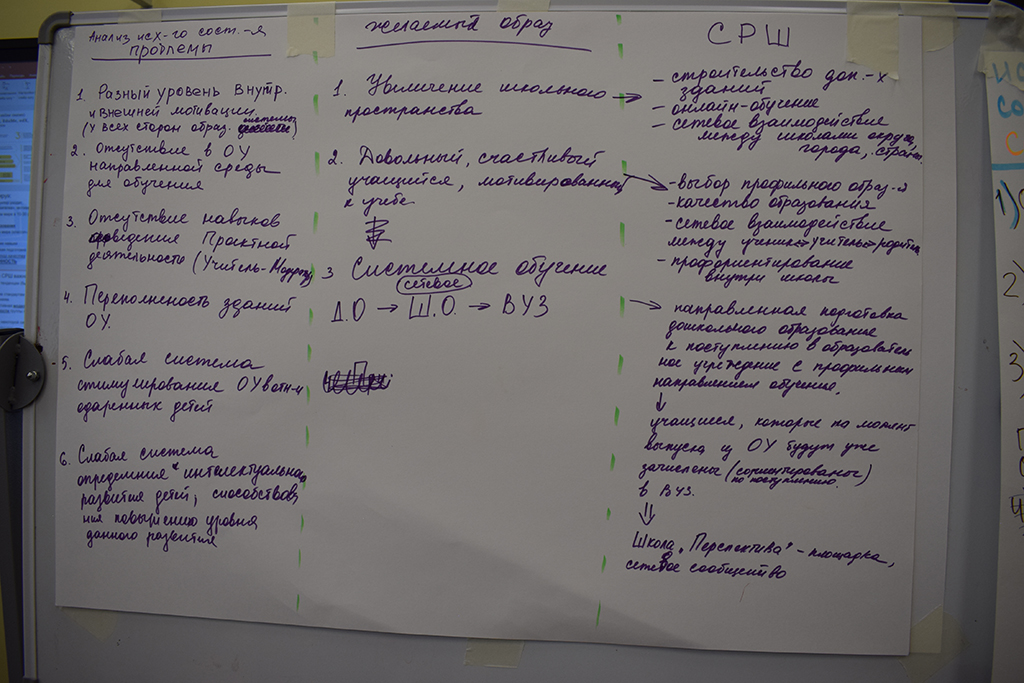 Анализ исх-го сост.-я
проблемы
1. Разный уровень внутр.
и внешней мотивации
(у всех сторон образ. системы)
2. Отсутствие в ОУ
направленной среды
для обучения
3. Отсутствие навыков
ведения Проктной
деятельности (Учитель-
4. Переполненость зданий
ОУ.
5. Слабая система
стимулирования ОУ
одаренных детей
6. Слабая система
определния интелектуальног
развития детей, способствов
ния повышению уровня
данного развития
желаемый образ
1. Увеличение школьного
пространства
2. Довольный, счастливый
учащийся, мотивированный
к учебе
3 Системное обучение
(сетевое)
Д.О → Ш.О. → ВУЗ
СРШ
→ - строительство доп.-х
зданий
- онлайн-обучение
- сетевое взаимодействие
между школами округа,
города, страны.
→ - выбор профильного образ-я
- качество образования
- сетевое взаимодействие
между ученик-учитель-родитель
- профориентирование
внутри школы
→ направленная подготовка
дошкольного образование
к поступлению в образовател
ное учреждение с профильным
направлением обучение.
↓
учащиеся, которые на момент
выпуска из ОУ будут уже
зачислены (
по поступлению)
в ВУЗ.
⇓
Школа „Перспектива" - площадка,
сетевое сообщество
1)
2)
3)
4